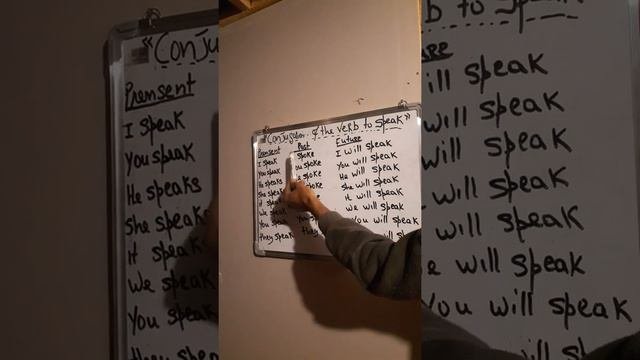 "Conjugation of the verb to speak"
Premsent Past Future
I speak spoke I will speak
You speak you spoke You will speak
He speaks spoke He will speak
She speaks spoke she will speak
it speaks it will speak
We speak we will speak
You speak You You will speak
they speak they will speak